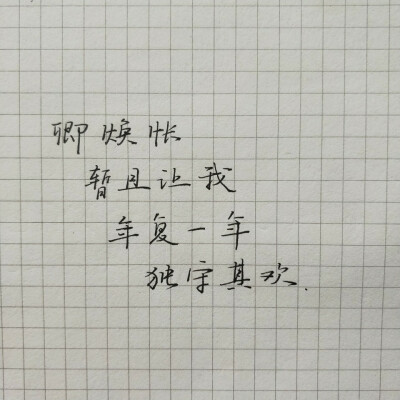 卿焕怅
暂且让我
年复一年
独守其欢.